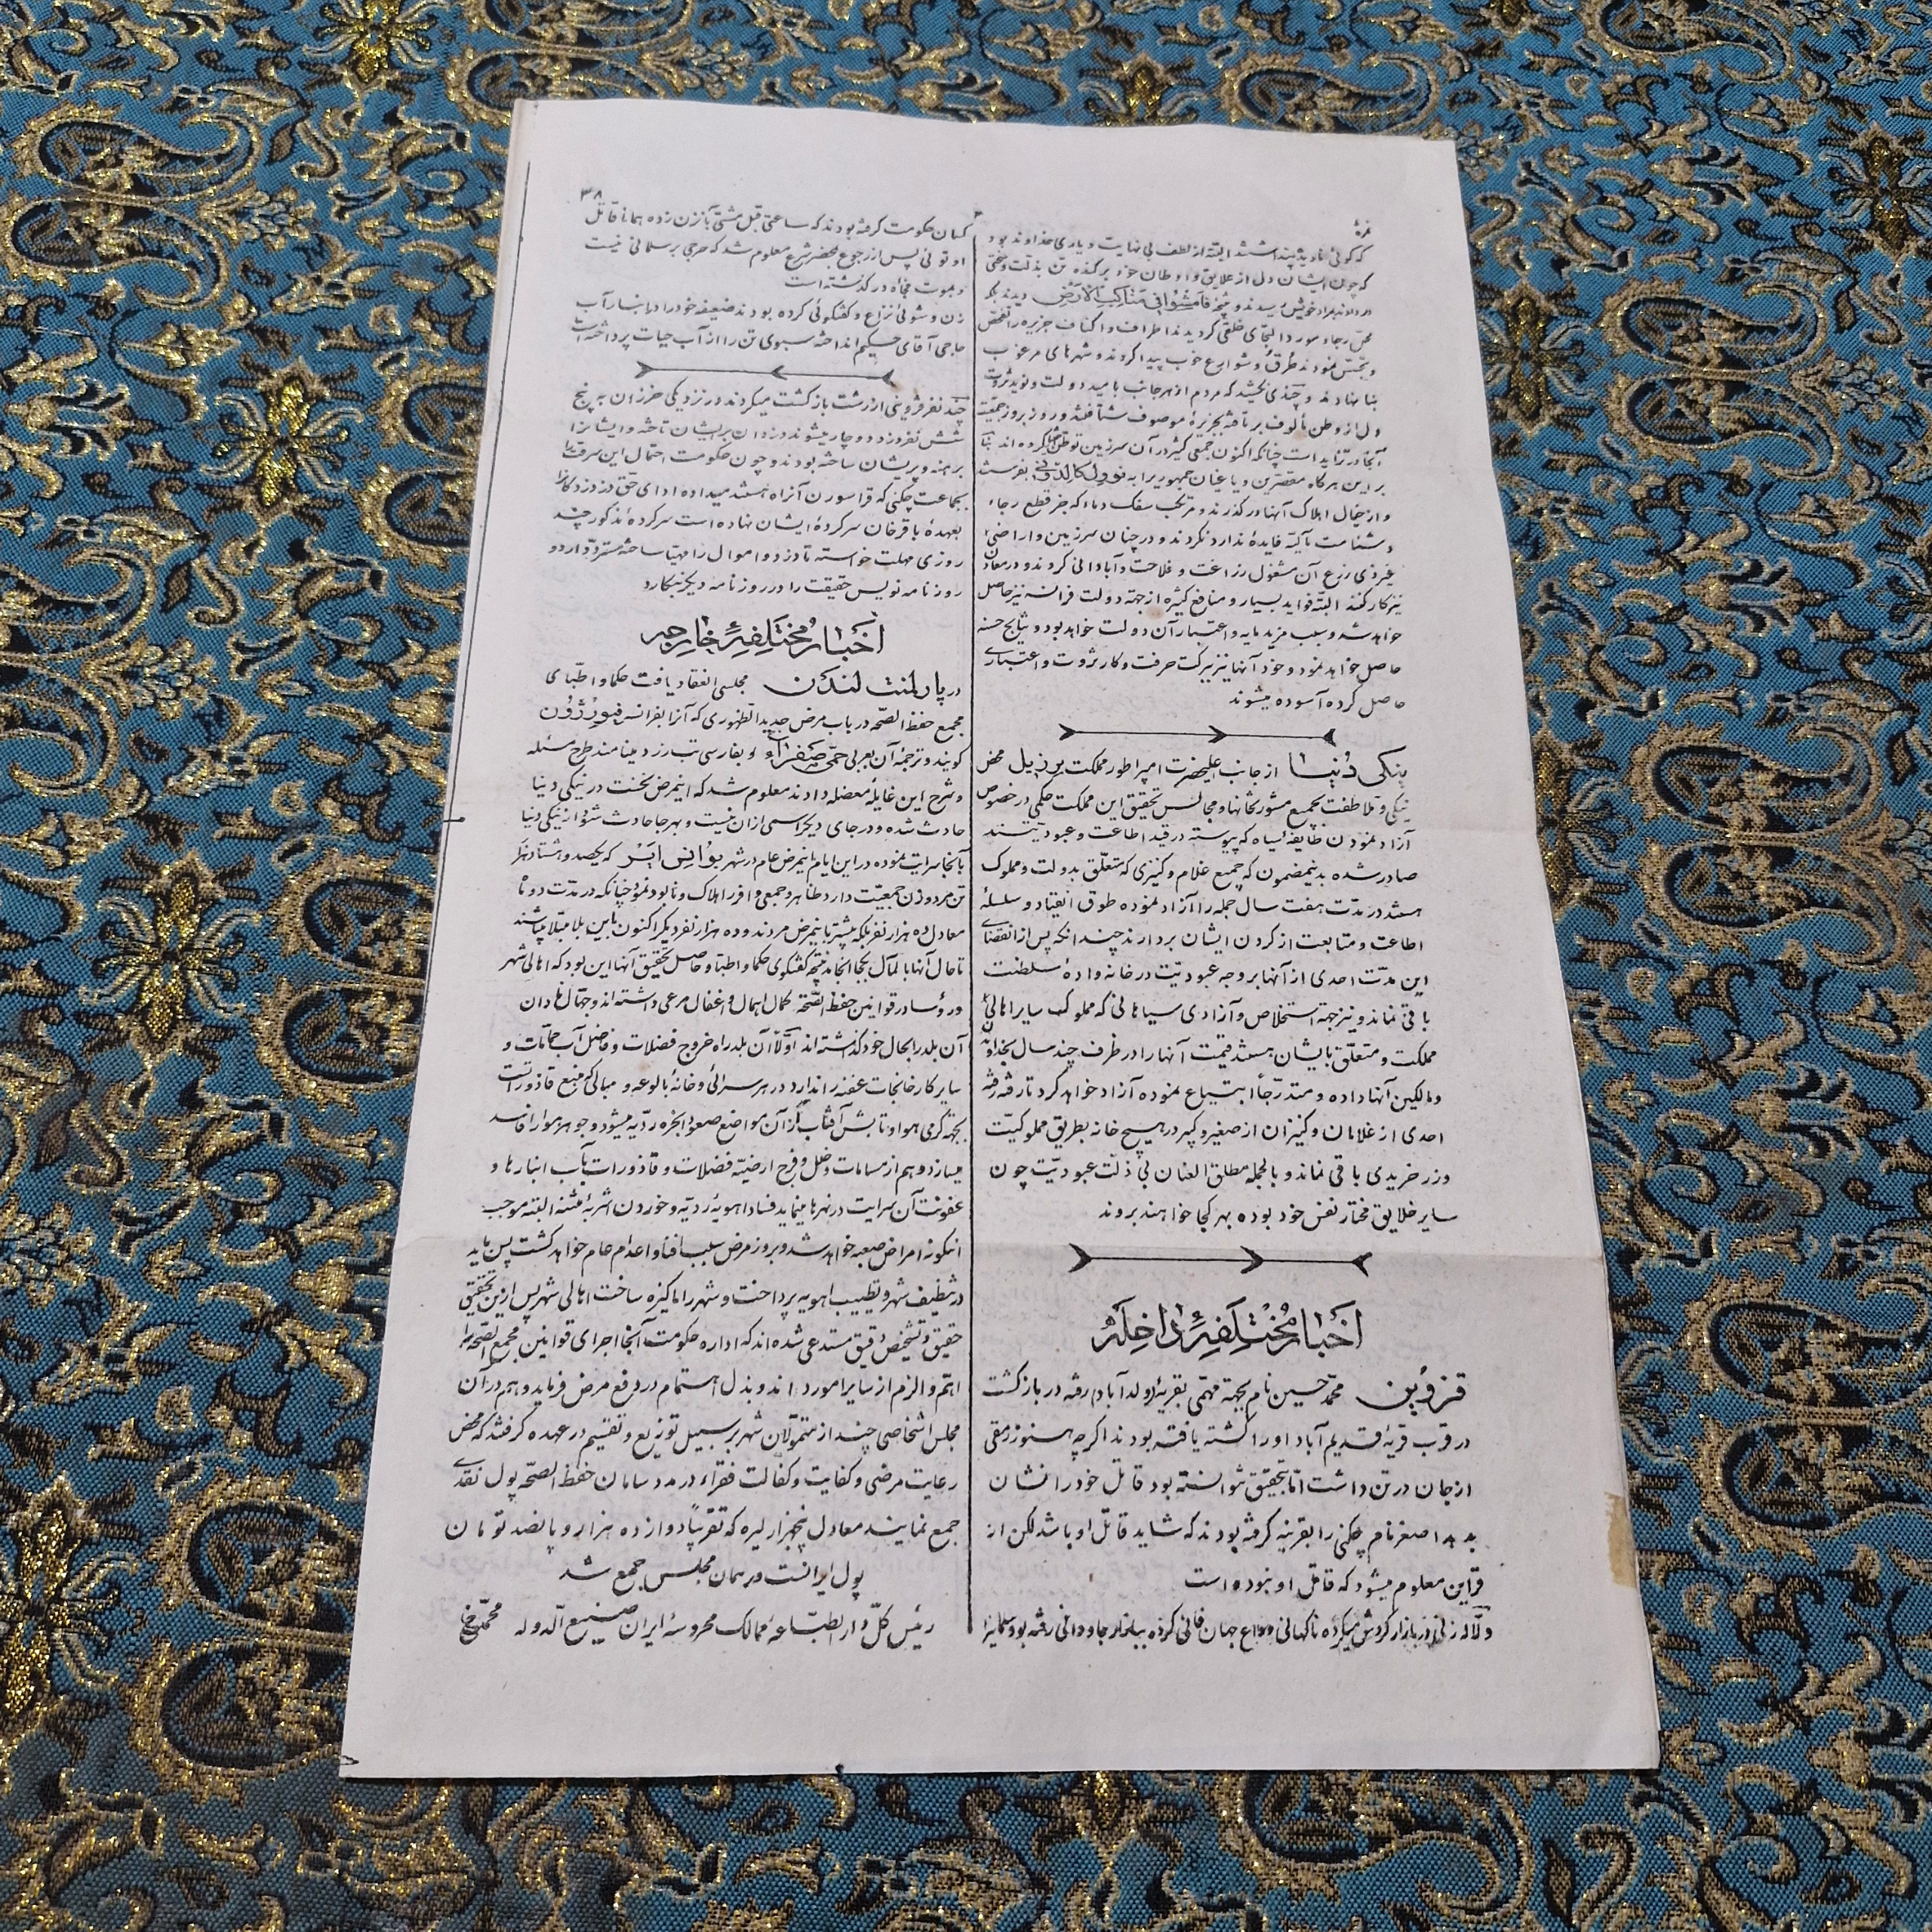 نمرهٔ
۳۸
که کوئی نادیده پنداشتند البته از لطف بی نهایت و یاری خداوند بود
که چون ایشان دل از علایق و اوطان خود برکنده تن بذلت و سختی
خویش رسیدند و فامشوا فی مناکب الارض دیدند که
محل رجا و مورد التجای خلقی کردیدند اطراف و اکناف جزیره را تفحص
و تجسس نمودند طرق و شوارع خوب پیدا کردند و شهرهای مرغوب
بنا نهادند و چندی نکشید که مردم از هر جانب بامید دولت و نوید ثروت
دل از وطن مألوف برتافته بجزیرهٔ موصوف شتافتند و روز بروز جمعیت
آنجا در تزاید است چنانکه اکنون جمعی کثیر در آن سرزمین توطن کرده اند
بر این هرگاه مقصرین و یاغیان جمهوریرا به نوول کالدنی بفرستند
و از خیال اهلاک آنها در گذرند و مرتکب سفک دماء که جز قطع رجاء
و شنامت مآیته فایدهٔ ندارد نکردند و در چنان سرزمین و اراضی
غیر ذی زرع آن مشغول زراعت و فلاحت و آبادانی کردند و در معادن
نیز کار کنند البته فواید بسیار و منافع کثیره از جهة دولت فرانسه نیز حاصل
خواهد شد و سبب مزید مایه و اعتبار آن دولت خواهد بود و نتایج حسنه
حاصل خواهد نمود و خود آنها نیز ببرکت حرفت و کار ثروت و اعتباری
حاصل کرده آسوده میشوند
ینکی دنیا از جانب اعلیحضرت امپراطور مملکت برزیل محض
نیکی و ملاطفت بجمیع مشورتخانها و مجالس تحقیق این مملکت حکمی در خصوص
آزاد نمودن طایفهٔ سیاه که پیوسته در قید اطاعت و عبودیتند
صادر شده بدینمضمون که جمیع غلام و کنیزی که متعلق بدولت و مملوک
هستند در مدت هفت سال جمله را آزاد نموده طوق انقیاد و سلسلهٔ
اطاعت و متابعت از کردن ایشان بردارند چندانکه پس از انقضای
این مدت احدی از آنها بر وجه عبودیت در خانه وادهٔ سلطنت
باقی نماند و نیز جهة استخلاص و آزادی سیاهانی که مملوک سایر اهالی
مملکت و متعلق بایشان هستند قیمت آنها را در ظرف چند سال بخداوندان
و مالکین آنها داده و متدرجاً ابتیاع نموده آزاد خواهد کرد تا رفته رفته
احدی از غلامان و کنیزان از صغیر و کبیر در هیچ خانه بطریق مملوکیت
و زر خریدی باقی نماند و بالجمله مطلق العنان بی ذلت عبودیت چون
سایر خلایق مختار نفس خود بوده بهر کجا خواهند بروند
اخبار مختلفهٔ داخله
قزوین محمد حسین نام بجهة مهمی بقریهٔ دولدآباد رفته در بازگشت
در قرب قریهٔ قدیم آباد او را کشته یافته بودند اگر چه هنوز رمقی
از جان در تن داشت اما بتحقیق نتوانسته بود قاتل خود را نشان
بدهد اصغر نام چکنی را بقرینه گرفته بودند که شاید قاتل او باشد لکن از
قراین معلوم میشود که قاتل او نبوده است
دلاله زنی در بازار گردش میکرده ناگهانی وداع جهان فانی کرده ببازار جاودانی رفته بود مسلمانیرا
کسان حکومت گرفته بودند که ساعتی قبل مشتی بآن زن زده همانا قاتل
او توئی پس از رجوع بمحضر شرع معلوم شد که حرجی بر مسلمانی نیست
و بموت فجأه در گذشته است
زن و شوئی نزاع و گفتگوئی کرده بودند ضعیفه خود را در انبار آب
حاجی آقای حکیم انداخته سبوی تن را از آب حیات پرداخته است
چند نفر قزوینی از رشت بازگشت میکردند در نزدیکی خرزان به پنج
شش نفر دزد دوچار میشوند دزدان بر ایشان تاخته و ایشانرا
برهنه و پریشان ساخته بودند و چون حکومت احتمال این سرقت را
بجماعت چکنی که قراسوران آنراه هستند میداده ادای حق دزد زدکانرا
بعهدهٔ باقرخان سرکردهٔ ایشان نهاده است سرکردهٔ مذکور چند
روزی مهلت خواسته تا دزد و اموال را مهیا ساخته مسترد دارد و
روزنامه نویس حقیقت را در روزنامه دیگر نکارد
اخبار مختلفهٔ خارجه
در پارلمنت لندن مجلسی انعقاد یافت حکما و اطبای
مجمع حفظ الصحه در باب مرض جدید الظهوری که آنرا بفرانسه فیورژون
گویند و ترجمهٔ آن بعربی حمی صفراء و بفارسی تب زرد مینامند طرح مسئله
و شرح این غایلهٔ معضله دادند معلوم شد که اینمرض نخست در ینکی دنیا
حادث شده و در جای دیگر اسمی از آن نیست و بهر جا حادث شود از ینکی دنیا
بآنجا سرایت نموده در این ایام اینمرض عام در شهر بوانس ایر که یکصد و هشتاد هزار
تن مرد و زن جمعیت دارد ظاهر و جمعی وافر را هلاک و نابود نمود چنانکه در مدت دو ماه
معادل ده هزار نفر بلکه بیشتر باینمرض مردند و ده هزار نفر دیگر اکنون باین بلا مبتلا میباشند
تا حال آنها بالمآل بکجا انجامد نتیجهٔ گفتگوی حکما و اطبا و حاصل تحقیق آنها این بود که اهالی شهر
و رؤسا در قوانین حفظ الصحه کمال اهمال و اغفال مرعی داشته اند و جهال نادان
آن بلد را بحال خود گذشته اند اولاً آن بلد راه خروج فضلات و فاضل آب حمامات و
سایر کارخانجات عفنه را ندارد در هر سرائی و خانهٔ بالوعه و مبالی که منبع قاذورات است
بجهة گرمی هوا و تابش آفتاب از آن مواضع صعود ابخره ردیه میشود و جوهر هوا را فاسد
میسازد و هم از مسامات و خلل و فرج ارضیه فضلات و قاذورات بآب انبارها و
عفونت آن سرایت در نهرها مینماید فساد اهویهٔ ردیه و خوردن اشربهٔ متنه البته موجب
اینگونه امراض صعبه خواهد شد و بروز مرض سبب افنا و اعدام عام خواهد گشت پس باید
در تنظیف شهر و تطییب اهویه پرداخت و شهر را پاکیزه ساخت اهالی شهر پس از این تحقیق
حقیق و تشخیص دقیق مستدعی شده اند که اداره حکومت آنجا اجرای قوانین مجمع الصحه را
اهم و الزم از سایر امور داند و بذل اهتمام در رفع مرض فرماید و هم در آن
مجلس اشخاصی چند از متمولان شهر بر سبیل توزیع و تقسیم در عهده گرفتند که محض
رعایت مرضی و کفایت و کفالت فقراء در مدد سامان حفظ الصحه پول نقدی
جمع نمایند معادل پنجهزار لیره که تقریباً دوازده هزار و پانصد تومان
پول ایرانست در همان مجلس جمع شد
رئیس کل دار الطباعهٔ ممالک محروسهٔ ایران صنیع الدوله محمد حسن